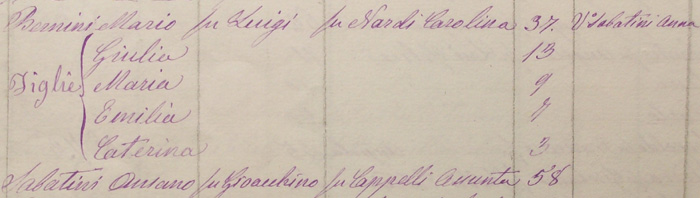 Bernini Mario fu Luigi fu Nardi Carolina 37. Va Sabatini Anna
Giulia 13
Figlie Maria 9
Emilia 7
Caterina 3
Sabatini Ansano fu Gioacchino fu Cappelli Assunta 58